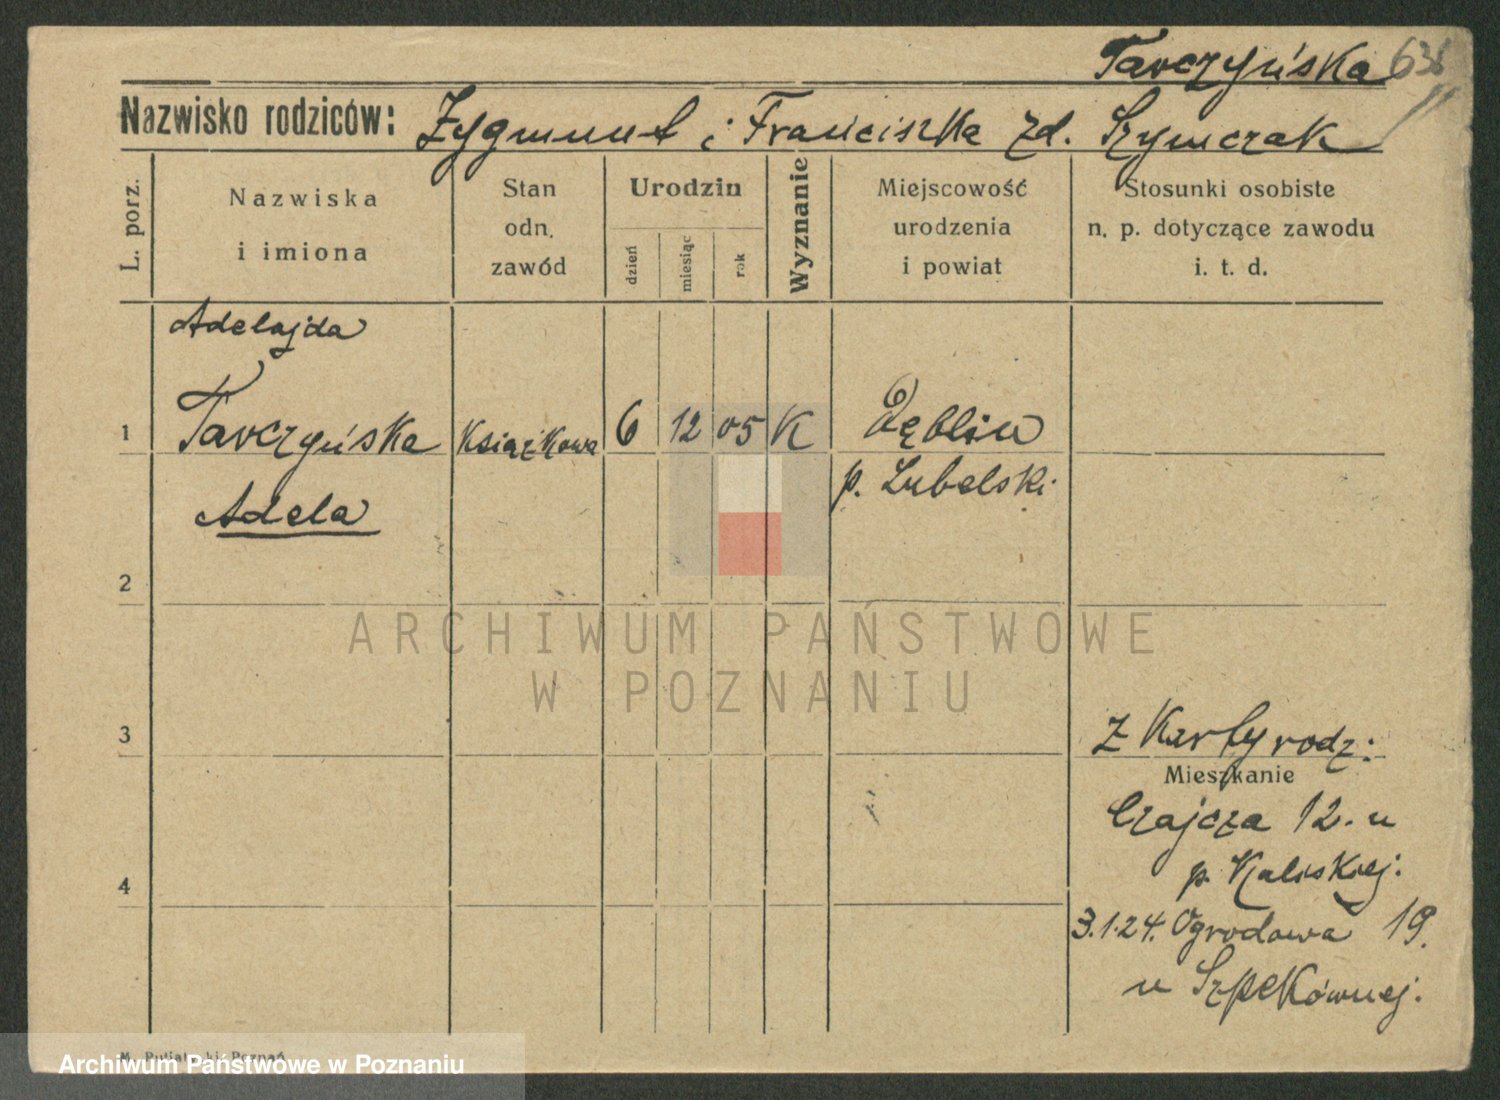 Tarczyńska 638
Nazwisko rodziców: Zygmunt i Franciszka zd. Szymczak
L. porz.
Nazwiska
i imiona
Stan
odn.
zawód
Urodzin
dzień
miesiąc
rok
Wyznanie
Miejscowość
urodzenia
i powiat
Stosunki osobiste
n. p. dotyczące zawodu
i. t. d.
Adelajda
1 Tarczyńska Książkowa 6 12 05 K Dęblin
p. Lubelski
Adela
2
ARCHIWUM PAŃSTWOWE
W POZNANIU
3
z Karty rodz:
Mieszkanie
Czajcza 12. u
p. Kaliskiej.
4
3.1.24. Ogrodowa 19.
u Szpekównej.
Poznań
Archiwum Państwowe w Poznaniu